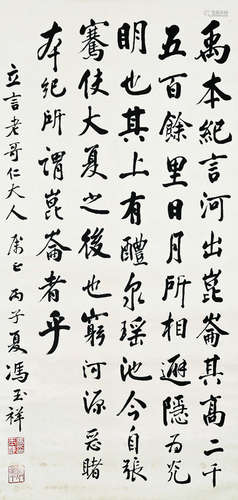 禹本紀言河出崑崙其高二千
五百餘里日月所相避隱為光
明也其上有醴泉瑤池今自張
騫使大夏之後也窮河源惡睹
本紀所謂崑崙者乎
立言老哥仁大人属正丙子夏馮玉祥